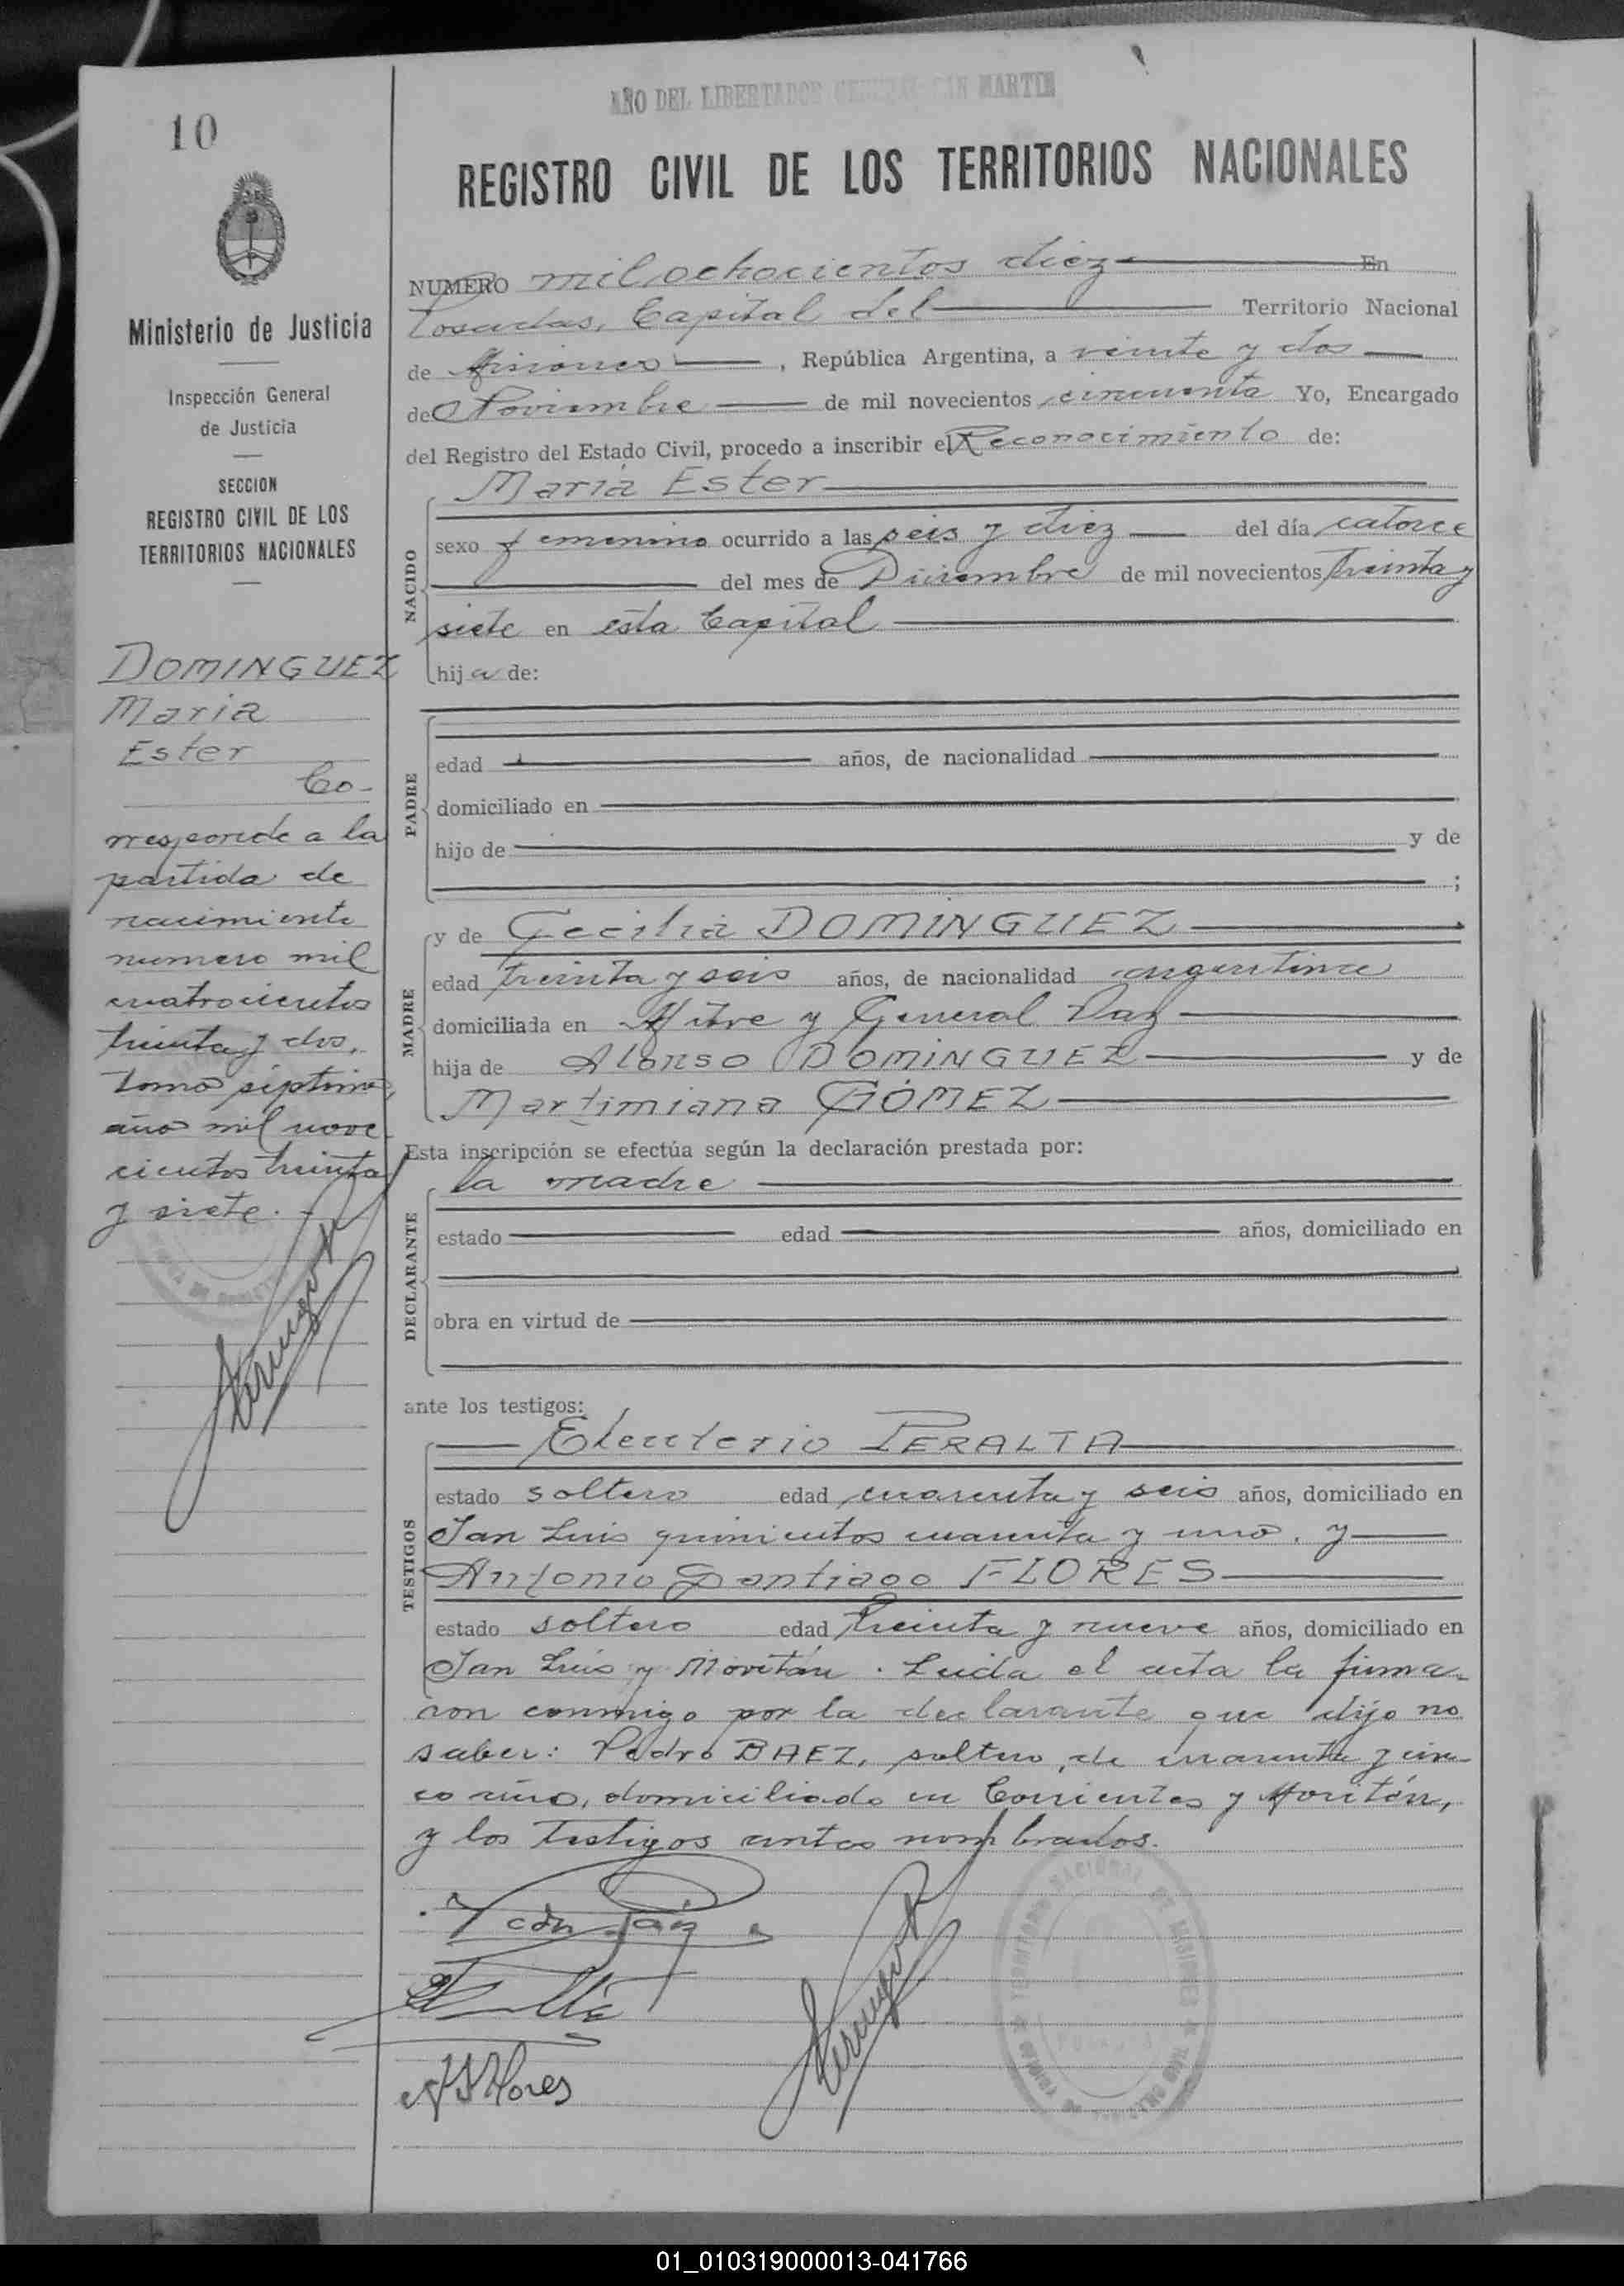 AÑO DEL LIBERTADOR GENERAL SAN MARTIN
10
REGISTRO CIVIL DE LOS TERRITORIOS NACIONALES
Ministerio de Justicia
Inspección General
de Justicia
SECCION
REGISTRO CIVIL DE LOS
TERRITORIOS NACIONALES
DOMINGUEZ
Maria
Ester
Co-
rresponde a la
partida de
nacimiento
numero mil
cuatrocientos
treinta y dos,
tomo séptimo,
año mil nove-
cientos treinta
y siete.-
NUMERO mil ochocientos diez En
Posadas, Capital del Territorio Nacional
de Misiones, República Argentina, a veinte y dos
de Noviembre de mil novecientos cincuenta Yo, Encargado
del Registro del Estado Civil, procedo a inscribir el Reconocimiento de:
NACIDO
Maria Ester
sexo femenino ocurrido a las seis y diez del día catorce
del mes de Diciembre de mil novecientos treinta y
siete en esta Capital
hija de:
PADRE
edad años, de nacionalidad
domiciliado en
hijo de y de
;
MADRE
y de Cecilia DOMINGUEZ
edad treinta y seis años, de nacionalidad argentina
domiciliada en Mitre y General Paz
hija de Alonso DOMINGUEZ y de
Martimiana GÓMEZ
Esta inscripción se efectúa según la declaración prestada por:
DECLARANTE
la madre
estado edad años, domiciliado en
obra en virtud de
ante los testigos:
TESTIGOS
Eleuterio PERALTA
estado soltero edad cuarenta y seis años, domiciliado en
San Luis quinientos cuarenta y uno, y
Antonio Santiago FLORES
estado soltero edad treinta y nueve años, domiciliado en
San Luis y Moritán. Leida el acta la firma-
ron conmigo por la declarante que dijo no
saber: Pedro BAEZ, soltero, de cuarenta y cin-
co años, domiciliado en Corrientes y Moritán,
y los testigos antes nombrados.
A S Flores
TERRITORIO NACIONAL DE MISIONES
01_010319000013-041766